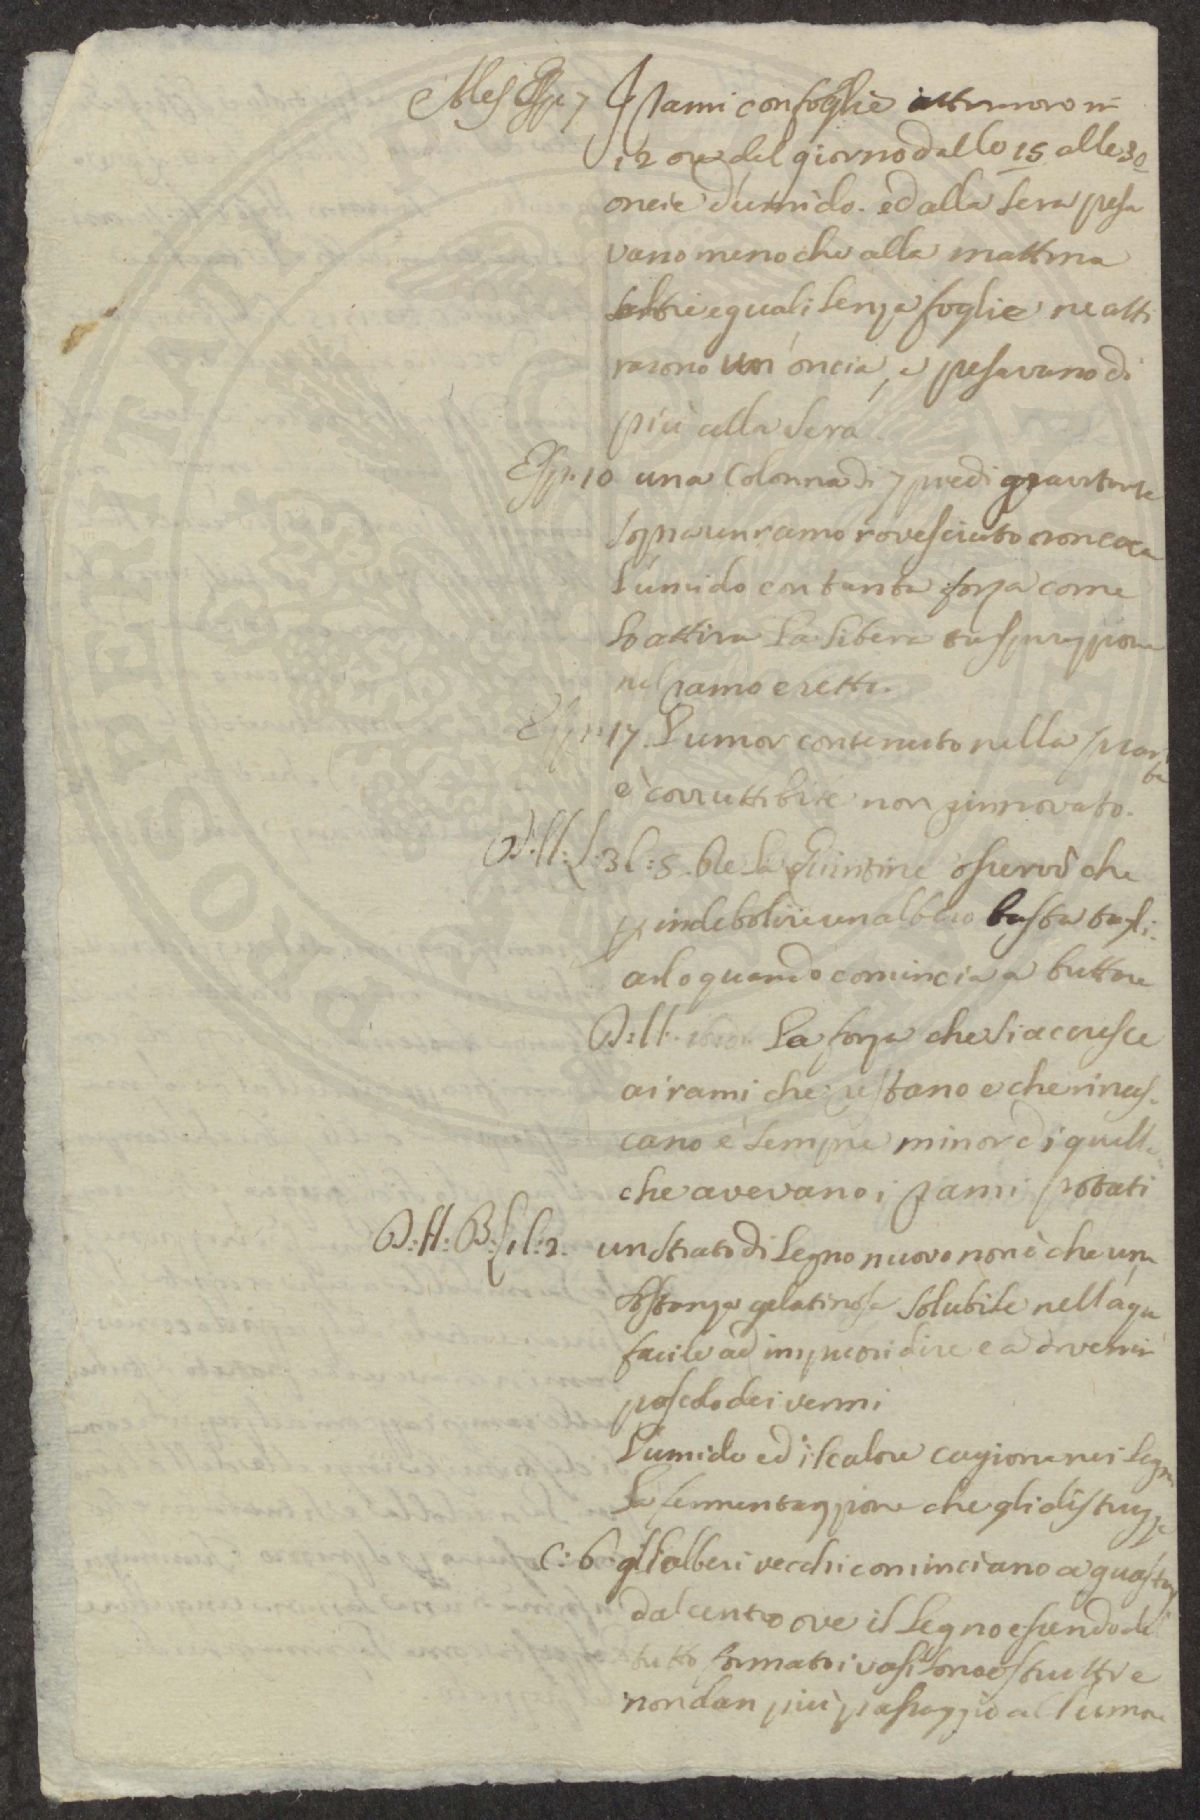 Ales Esp: 7 I rami con foglie attirarono in
12 ore del giorno dallo 15 alle 30
oncie d'umido. ed alla sera pesa
vano meno che alla mattina
altri eguali senza foglie ne atti
rarono un'oncia, e pesavano di
più alla sera
Esp: 10 una Colonna di 7 piedi gravitante
sopra un ramo rovesciato non caccia
l'umido con tanta forza come
lo attira la libera traspirazzione
nel ramo eretto.
Esp: 17. L'umor contenuto nella pian
ta
è corruttibile non rinnovato.
D:H: L:3 c:5. De la Quintine osservò che
p indebolire un albero basta tagli
arlo quando comincia a buttare
D:H: La forza che si accresce
ai rami che restano e che rinas
cano è sempre minor di quella
che avevano i rami potati
D:H: B: L1 c:2. un strato di legno nuovo non è che una
sostanza gelatinosa solubile nell aqua
facile ad imputridire e a divenir
pascolo dei vermi
L'umido ed il calore cagiona nei legni
la fermentazzione che gli distrugge
C: 6 gli alberi vecchi cominciano a guastarsi
dal centro ove il legno essendo del
tutto formato i vasi sono ostrutti e
non dan più passaggio all'umore